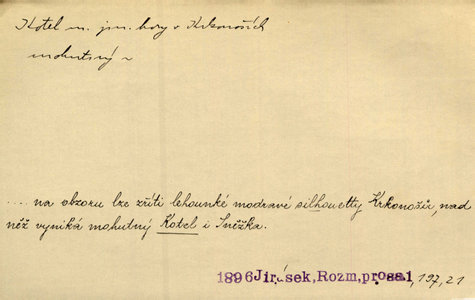 Kotel m. jm. hory v Krkonoších
mohutný ~
.... na obzoru lze zříti lehounké modravé silhouetty Krkonošů, nad
něž vyniká mohutný Kotel i Sněžka.
1896 Jirásek, Rozm. prosa 1, 197, 21